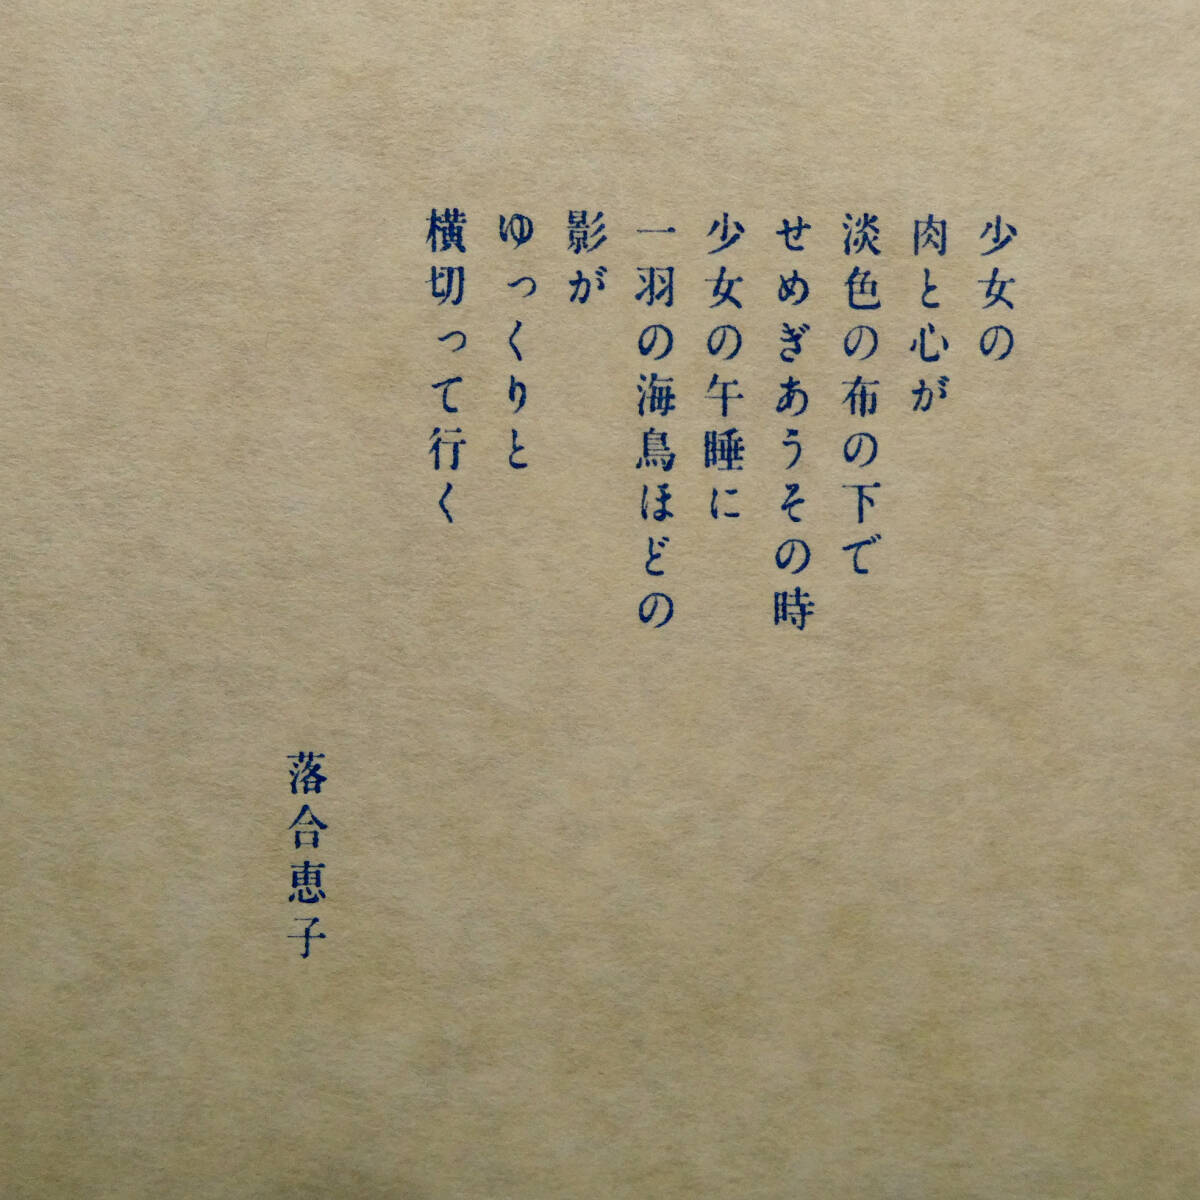 少女の
肉と心が
淡色の布の下で
せめぎあうその時
少女の午睡に
一羽の海鳥ほどの
影が
ゆっくりと
横切って行く
落合恵子